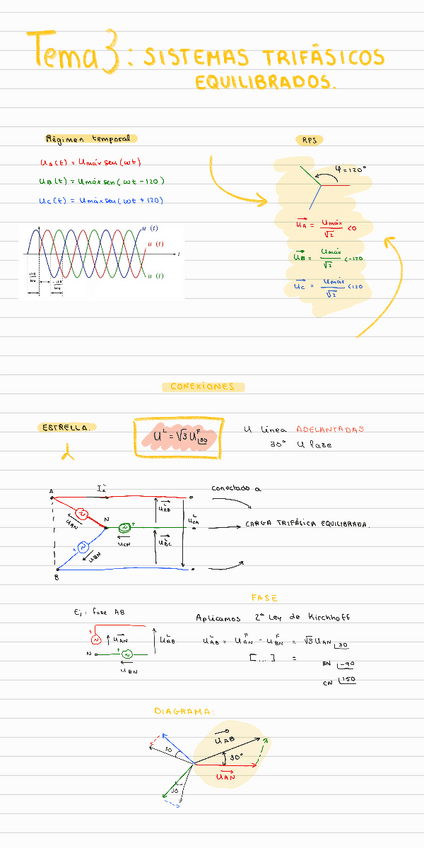 Tema 3: SISTEMAS TRIFÁSICOS
EQUILIBRADOS.
Régimen temporal
RPS
U_A(t) = Umáx sen(ωt)
U_B(t) = Umáx sen(ωt - 120)
U_C(t) = Umáx sen(ωt + 120)
φ = 120°
U_A = Umáx/√2 <0
U_B = Umáx/√2 <-120
U_C = Umáx/√2 <120
u (t)
u (t)
u (t)
t
CONEXIONES
ESTRELLA.
U^L = √3 U^F
U línea ADELANTADAS
30° U fase
A
N
B
U_AN
U_CN
U_BN
U_AB
U_BC
U_CA
conectado a
CARGA TRIFÁSICA EQUILIBRADA.
FASE
Ej: fase AB
Aplicamos 2ª Ley de Kirchhoff
N
U_AN
U_BN
U_AB
U_AB^L = U_AN^F - U_BN^F = √3 U_AN |30
[...] =
BN |-90
CN |150
DIAGRAMA:
U_AB
30°
U_AN
30
30